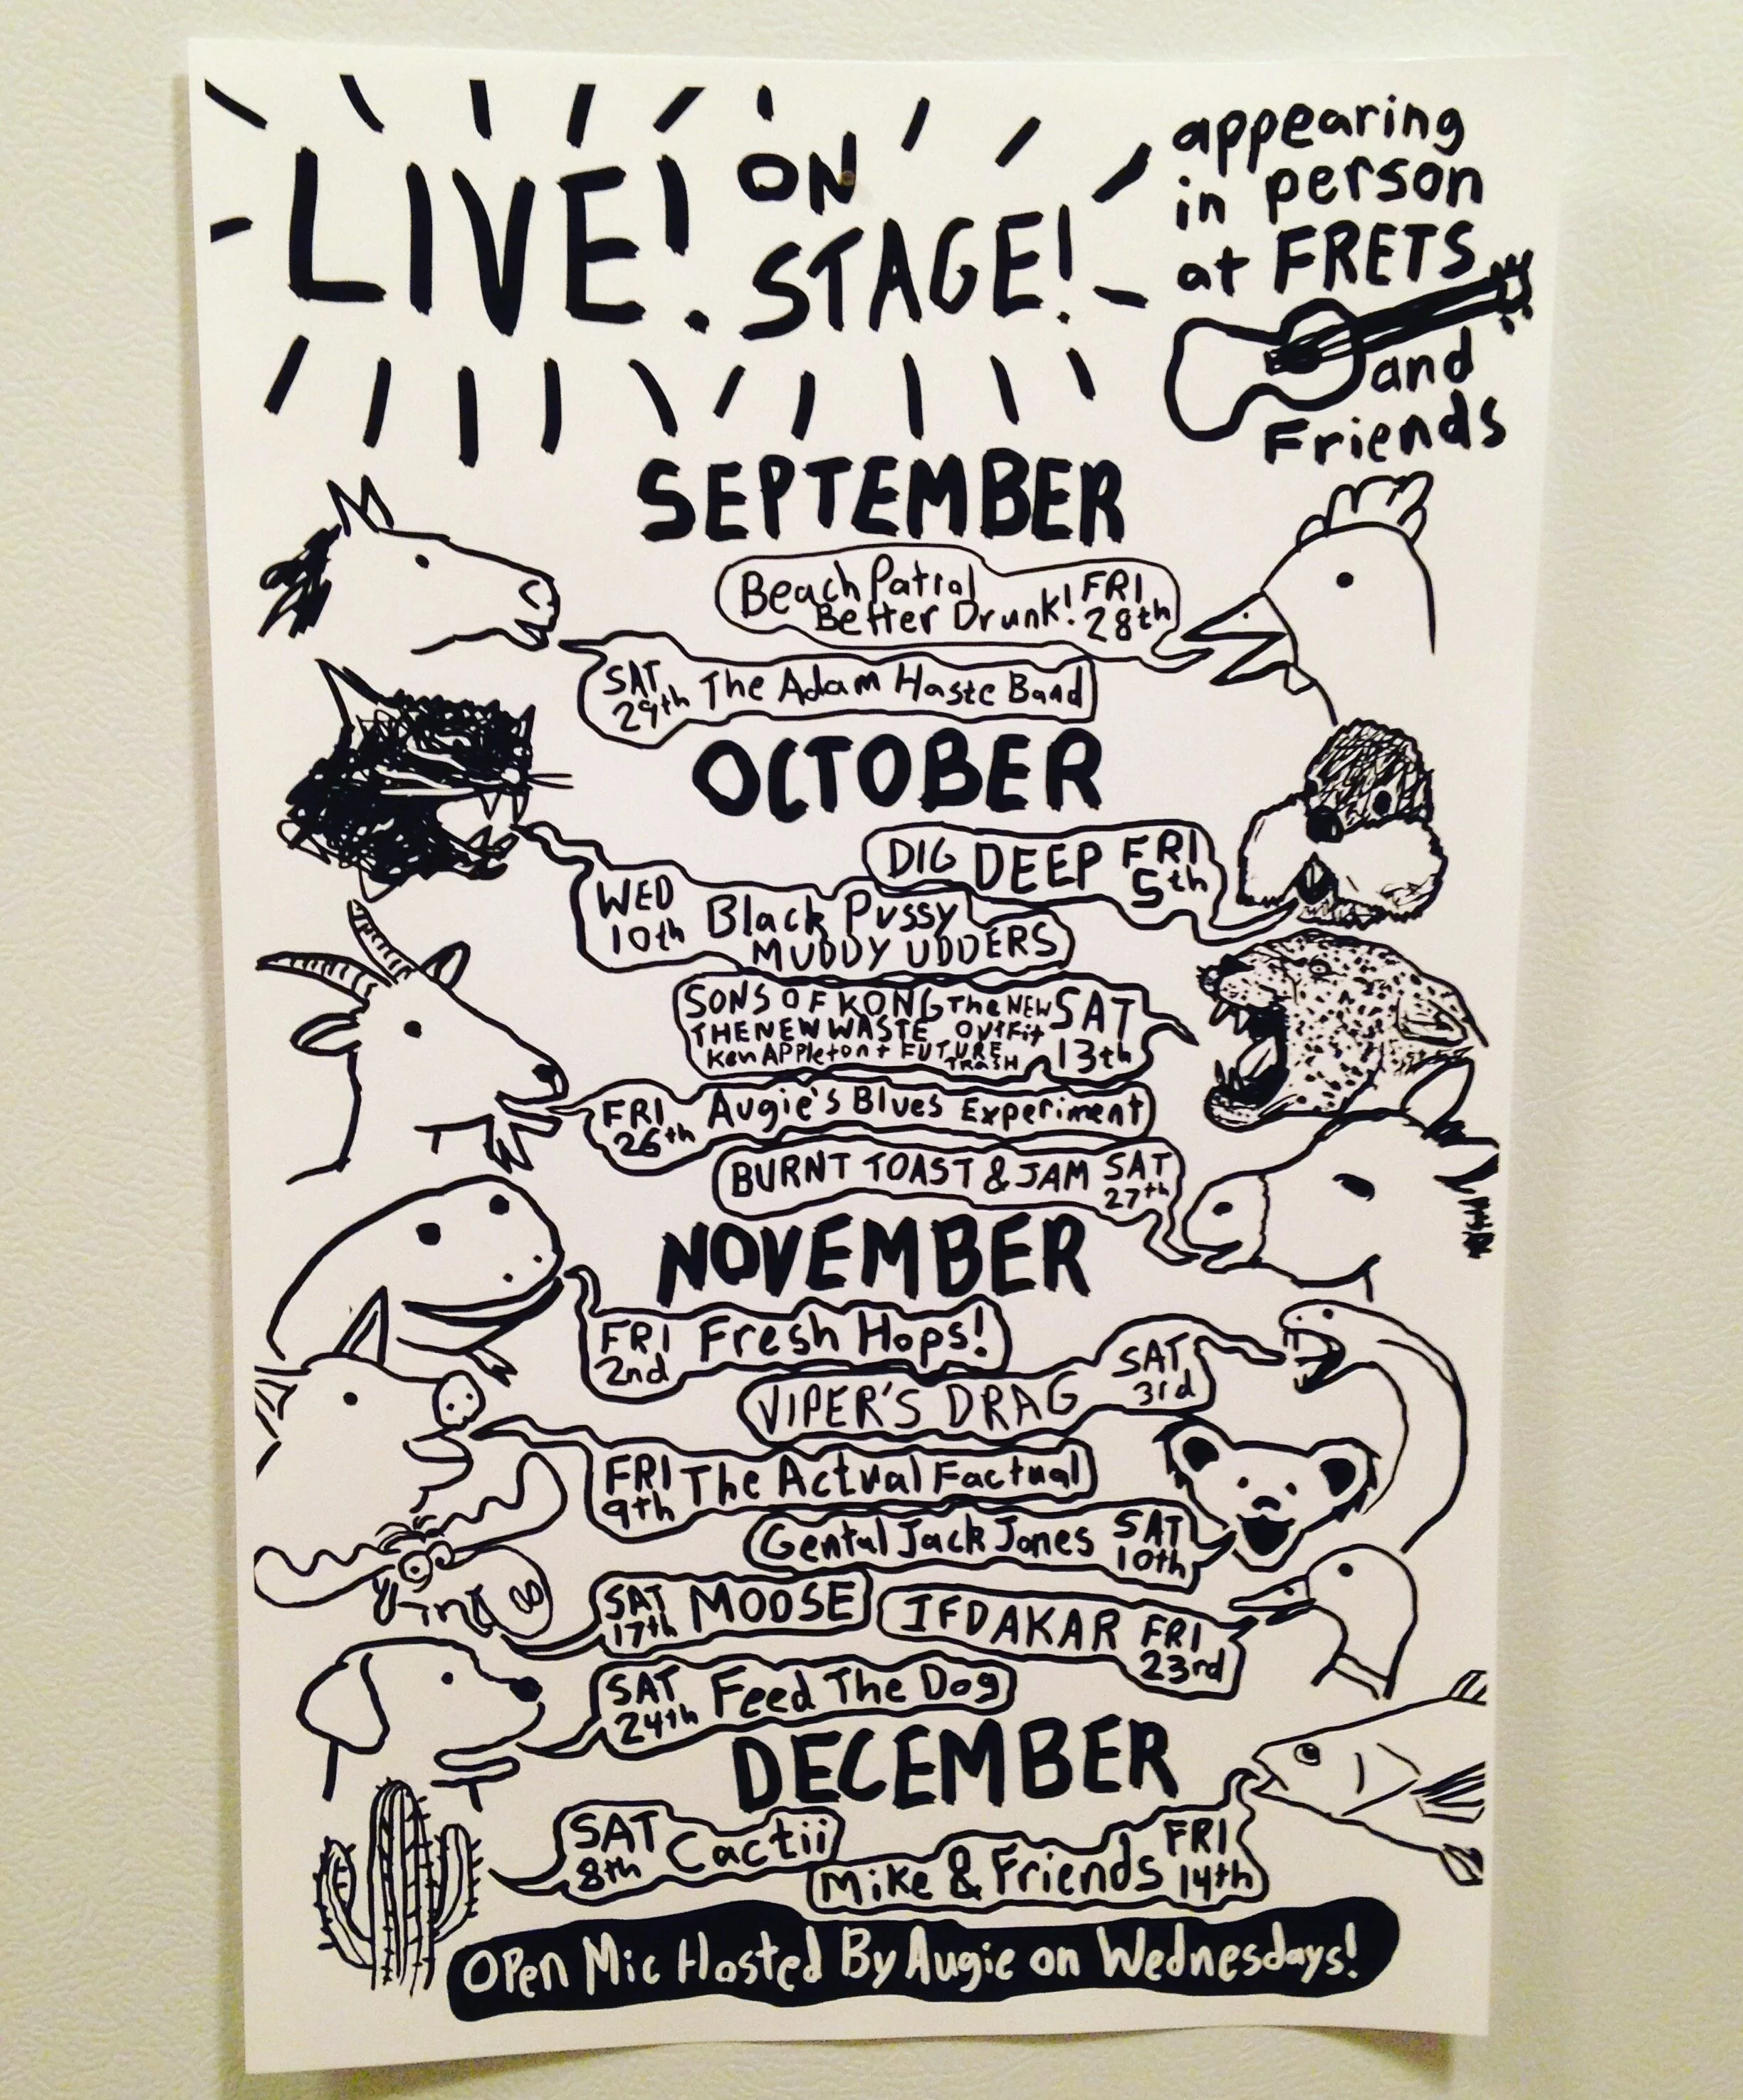 LIVE! ON
STAGE!
appearing
in person
at FRETS
and
Friends
SEPTEMBER
Beach Patrol FRI
Better Drunk! 28th
SAT The Adam Haste Band
29th
OCTOBER
DIG DEEP FRI
5th
WED Black Pussy
10th MUDDY UDDERS
SONS OF KONG The NEW SAT
THE NEW WASTE OUTFit
Ken APPleton + FUTURE 13th
TRASH
FRI Augie's Blues Experiment
26th
BURNT TOAST & JAM SAT
27th
NOVEMBER
FRI Fresh Hops!
2nd
SAT
VIPER'S DRAG 3rd
FRI The Actual Factual
9th
Gental Jack Jones SAT
10th
SAT MOOSE
17th
IFDAKAR FRI
23rd
SAT Feed The Dog
24th
DECEMBER
SAT Cactii
8th
FRI
Mike & Friends 14th
Open Mic Hosted By Augie on Wednesdays!